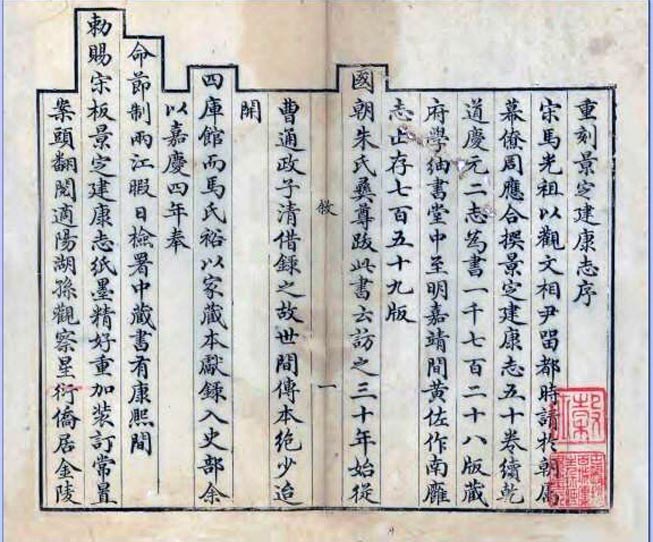 重刻景定建康志序
宋馬光祖以觀文相尹畱都時請於朝屬
幕僚周應合撰景定建康志五十卷續乾
道慶元二志為書一千七百二十八版藏
府學紬書堂中至明嘉靖間黃佐作南雝
志止存七百五十九版
國朝朱氏彝尊跋此書云訪之三十年始從
敘
一
曹通政子清借錄之故世間傳本絕少迨
開
四庫館而馬氏裕以家藏本獻錄入史部余
以嘉慶四年奉
命節制兩江暇日檢署中藏書有康熙間
勅賜宋板景定建康志紙墨精好重加裝訂常置
案頭翻閱適陽湖孫觀察星衍僑居金陵